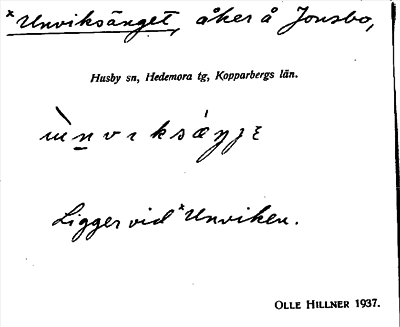 *Unviksänget, åker å Jonsbo,
Husby sn, Hedemora tg, Kopparbergs län.
Ligger vid *Unviken.
OLLE HILLNER 1937.